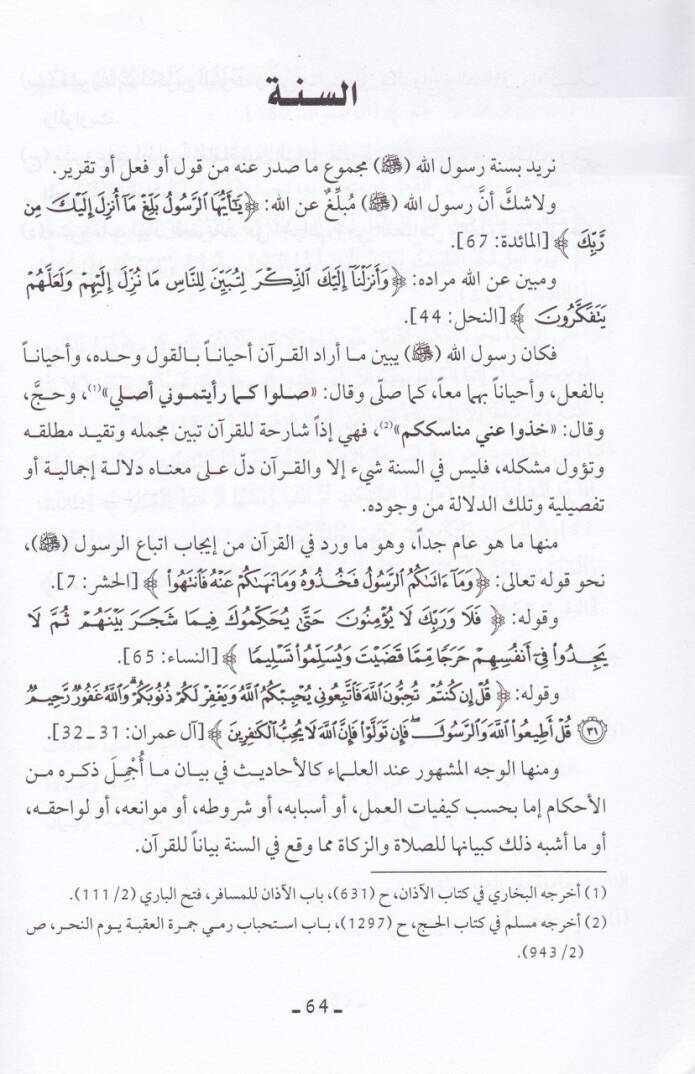 السنة
نريد بسنة رسول الله (ﷺ) مجموع ما صدر عنه من قول أو فعل أو تقرير.
ولاشكَّ أنَّ رسول الله (ﷺ) مُبلِّغٌ عن الله: ﴿ يَٰٓأَيُّهَا ٱلرَّسُولُ بَلِّغۡ مَآ أُنزِلَ إِلَيۡكَ مِن
رَّبِّكَ ﴾ [المائدة: 67].
ومبين عن الله مراده: ﴿ وَأَنزَلۡنَآ إِلَيۡكَ ٱلذِّكۡرَ لِتُبَيِّنَ لِلنَّاسِ مَا نُزِّلَ إِلَيۡهِمۡ وَلَعَلَّهُمۡ
يَتَفَكَّرُونَ ﴾ [النحل: 44].
فكان رسول الله (ﷺ) يبين ما أراد القرآن أحياناً بالقول وحده، وأحياناً
بالفعل، وأحياناً بهما معاً، كما صلّى وقال: «صلوا كما رأيتموني أصلي»(1)، وحجَّ،
وقال: «خذوا عني مناسككم»(2)، فهي إذاً شارحة للقرآن تبين مجمله وتقيد مطلقه
وتؤول مشكله، فليس في السنة شيء إلا والقرآن دلّ على معناه دلالة إجمالية أو
تفصيلية وتلك الدلالة من وجوده.
منها ما هو عام جداً، وهو ما ورد في القرآن من إيجاب اتباع الرسول (ﷺ)،
نحو قوله تعالى: ﴿ وَمَآ ءَاتَىٰكُمُ ٱلرَّسُولُ فَخُذُوهُ وَمَا نَهَىٰكُمۡ عَنۡهُ فَٱنتَهُواْ ﴾ [الحشر: 7].
وقوله: ﴿ فَلَا وَرَبِّكَ لَا يُؤۡمِنُونَ حَتَّىٰ يُحَكِّمُوكَ فِيمَا شَجَرَ بَيۡنَهُمۡ ثُمَّ لَا
يَجِدُواْ فِيٓ أَنفُسِهِمۡ حَرَجٗا مِّمَّا قَضَيۡتَ وَيُسَلِّمُواْ تَسۡلِيمٗا ﴾ [النساء: 65].
وقوله: ﴿ قُلۡ إِن كُنتُمۡ تُحِبُّونَ ٱللَّهَ فَٱتَّبِعُونِي يُحۡبِبۡكُمُ ٱللَّهُ وَيَغۡفِرۡ لَكُمۡ ذُنُوبَكُمۡۚ وَٱللَّهُ غَفُورٞ رَّحِيمٞ
٣١ قُلۡ أَطِيعُواْ ٱللَّهَ وَٱلرَّسُولَۖ فَإِن تَوَلَّوۡاْ فَإِنَّ ٱللَّهَ لَا يُحِبُّ ٱلۡكَٰفِرِينَ ﴾ [آل عمران: 31 ـ 32].
ومنها الوجه المشهور عند العلماء كالأحاديث في بيان ما أُجْمِلَ ذكره من
الأحكام إما بحسب كيفيات العمل، أو أسبابه، أو شروطه، أو موانعه، أو لواحقه،
أو ما أشبه ذلك كبيانها للصلاة والزكاة مما وقع في السنة بياناً للقرآن.
(1) أخرجه البخاري في كتاب الآذان، ح (631)، باب الآذان للمسافر، فتح الباري (2/ 111).
(2) أخرجه مسلم في كتاب الحج، ح (1297)، باب استحباب رمي جمرة العقبة يوم النحر، ص
(2/ 943).
ـ 64 ـ